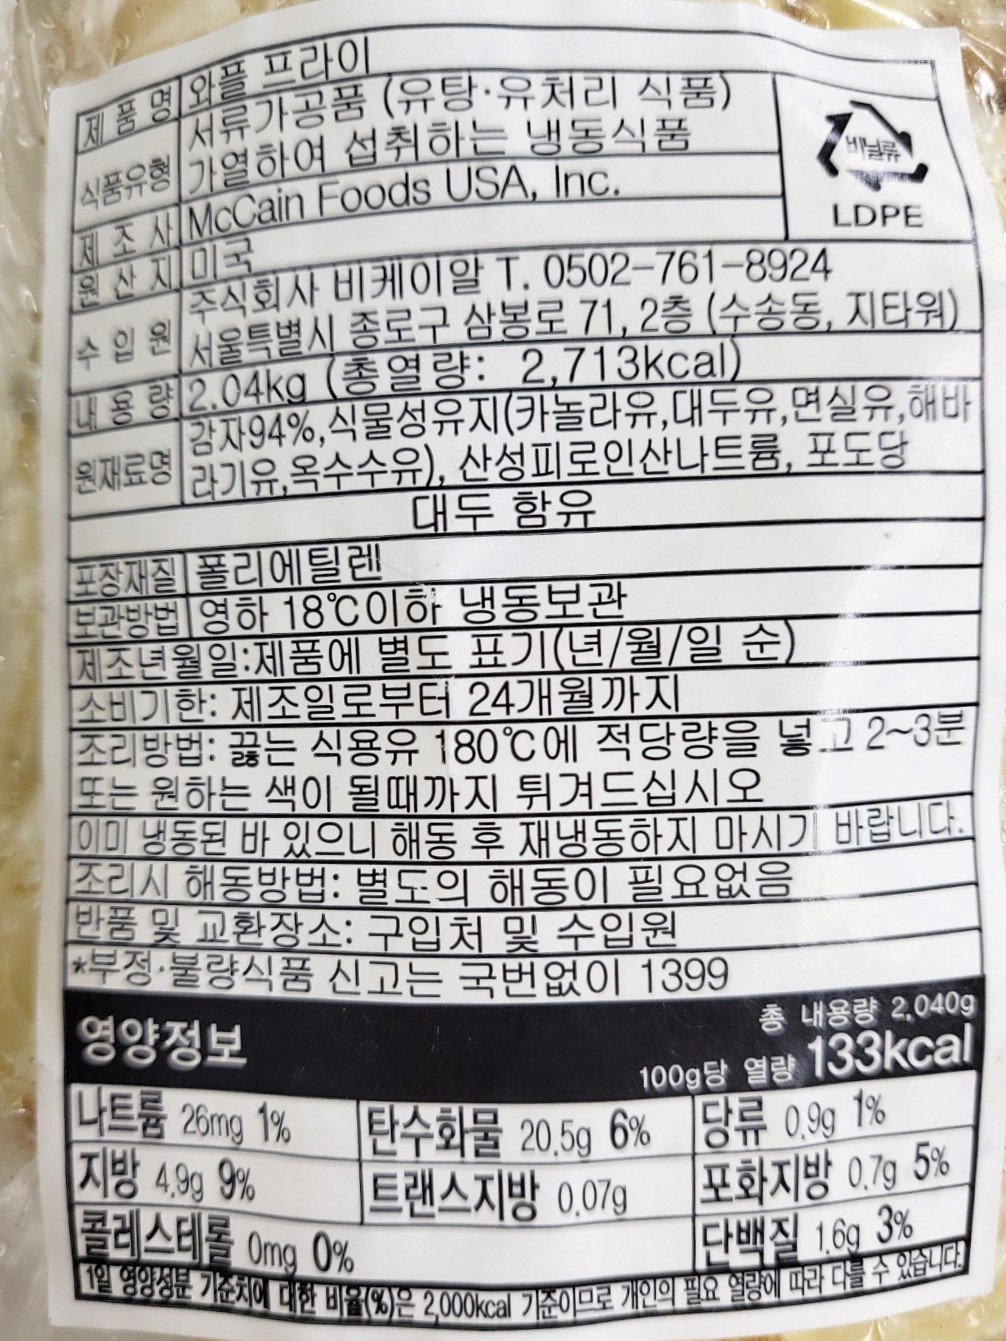 제 품 명 와플 프라이
식품유형 서류가공품 (유탕·유처리 식품)
가열하여 섭취하는 냉동식품
비닐류
LDPE
제 조 사 McCain Foods USA, Inc.
원 산 지 미국
수 입 원 주식회사 비케이알 T. 0502-761-8924
서울특별시 종로구 삼봉로 71, 2층 (수송동, 지타워)
내 용 량 2.04kg (총열량: 2,713kcal)
원재료명 감자94%,식물성유지(카놀라유,대두유,면실유,해바
라기유,옥수수유), 산성피로인산나트륨, 포도당
대두 함유
포장재질 폴리에틸렌
보관방법 영하 18℃이하 냉동보관
제조년월일:제품에 별도 표기(년/월/일 순)
소비기한: 제조일로부터 24개월까지
조리방법: 끓는 식용유 180℃에 적당량을 넣고 2~3분
또는 원하는 색이 될때까지 튀겨드십시오
이미 냉동된 바 있으니 해동 후 재냉동하지 마시기 바랍니다.
조리시 해동방법: 별도의 해동이 필요없음
반품 및 교환장소: 구입처 및 수입원
*부정·불량식품 신고는 국번없이 1399
영양정보
총 내용량 2,040g
100g당 열량 133kcal
나트륨 26mg 1% 탄수화물 20.5g 6% 당류 0.9g 1%
지방 4.9g 9% 트랜스지방 0.07g 포화지방 0.7g 5%
콜레스테롤 0mg 0% 단백질 1.6g 3%
1일 영양성분 기준치에 대한 비율(%)은 2,000kcal 기준이므로 개인의 필요 열량에 따라 다를 수 있습니다.